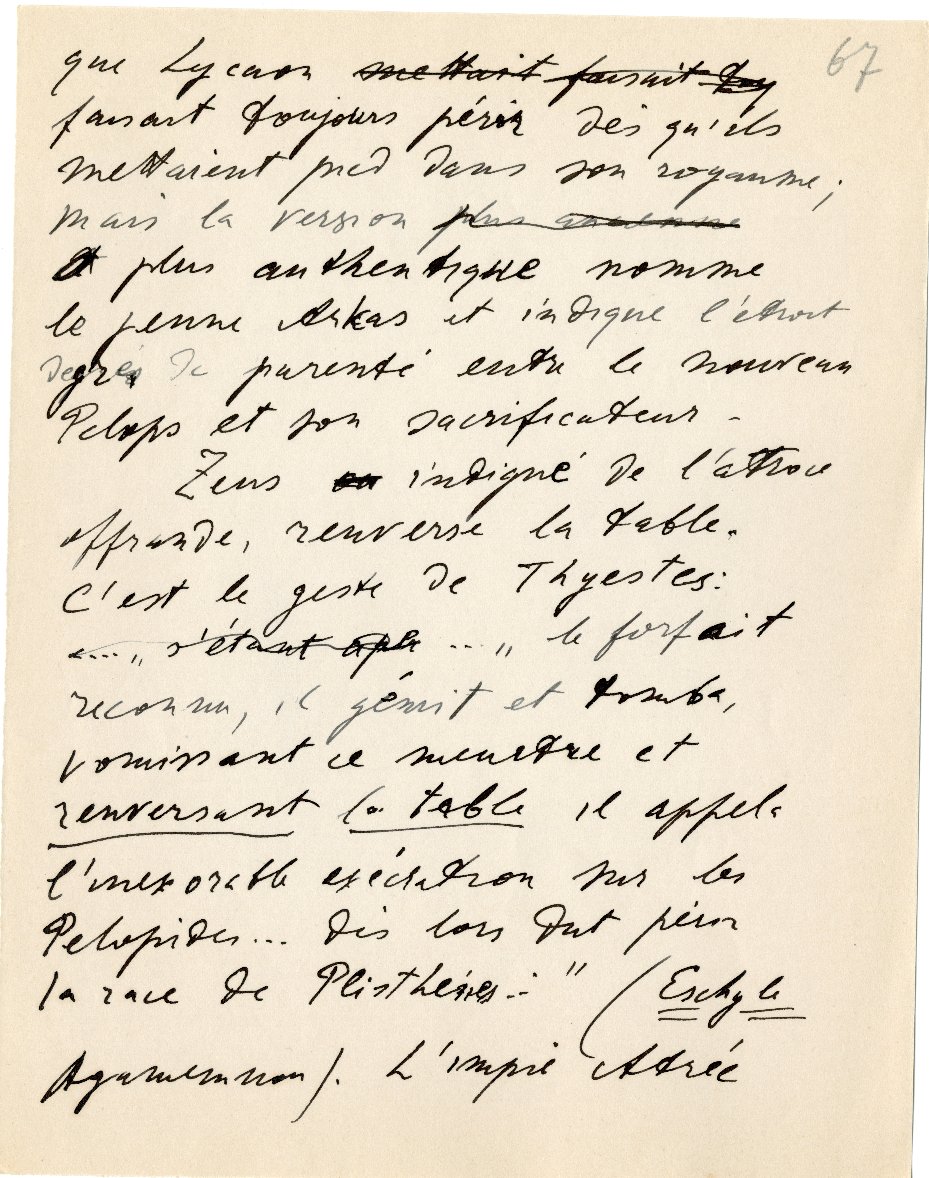 67
que Lycaon mettait faisait
faisait toujours périr dès qu'ils
mettaient pied dans son royaume;
mais la version plus ancienne
et plus authentique nomme
le jeune Arkas et indique l'étroit
degré de parenté entre le nouveau
Pelops et son sacrificateur -
Zeus indigné de l'atroce
offrande, renverse la table.
C'est le geste de Thyestes:
«... s'étant ... „ le forfait
reconnu, il gémit et tomba,
vomissant ce meurtre et
renversant la table il appela
l'inexorable exécration sur les
Pelopides... dès lors dut périr
la race de Plisthénes..." (Eschyle
Agamemnon). L'impie Atrée